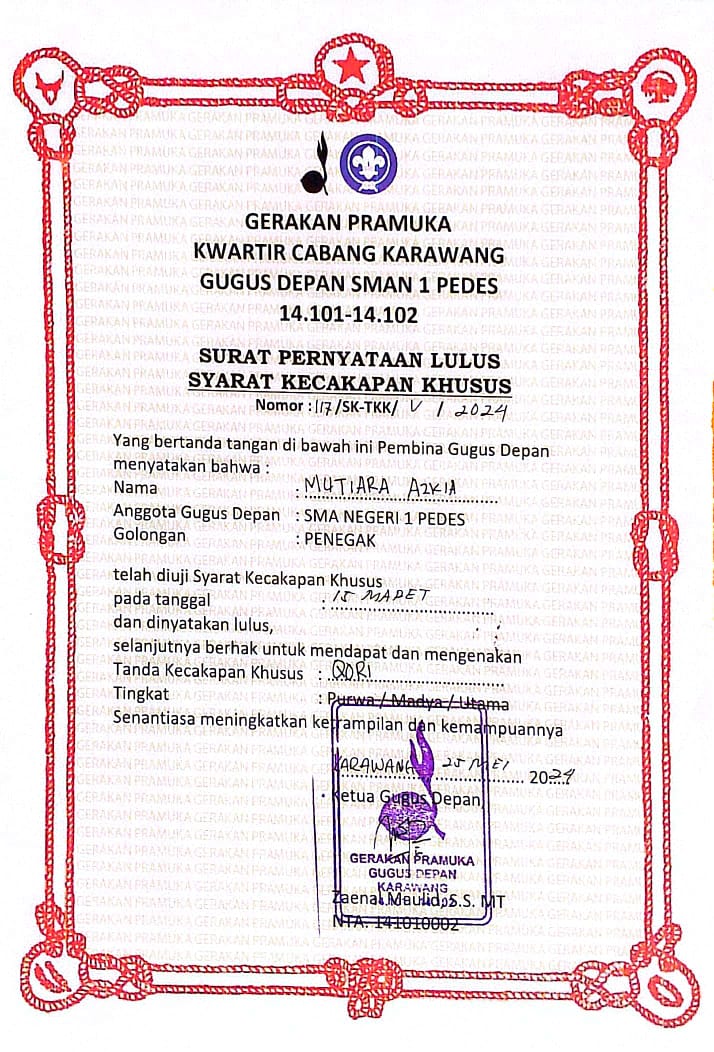 GERAKAN PRAMUKA
KWARTIR CABANG KARAWANG
GUGUS DEPAN SMAN 1 PEDES
14.101-14.102
SURAT PERNYATAAN LULUS
SYARAT KECAKAPAN KHUSUS
Nomor : 117/SK-TKK/ V / 2024
Yang bertanda tangan di bawah ini Pembina Gugus Depan
menyatakan bahwa :
Nama : MUTIARA AZKIA
Anggota Gugus Depan : SMA NEGERI 1 PEDES
Golongan : PENEGAK
telah diuji Syarat Kecakapan Khusus
pada tanggal : 15 MARET
dan dinyatakan lulus,
selanjutnya berhak untuk mendapat dan mengenakan
Tanda Kecakapan Khusus : QORI
Tingkat : Purwa / Madya / Utama
Senantiasa meningkatkan ketrampilan dan kemampuannya
KARAWANG 25 MEI 2024
Ketua Gugus Depan,
GERAKAN PRAMUKA
GUGUS DEPAN
KARAWANG
Zaenal Maulid, S.S. MT
NTA. 141010002